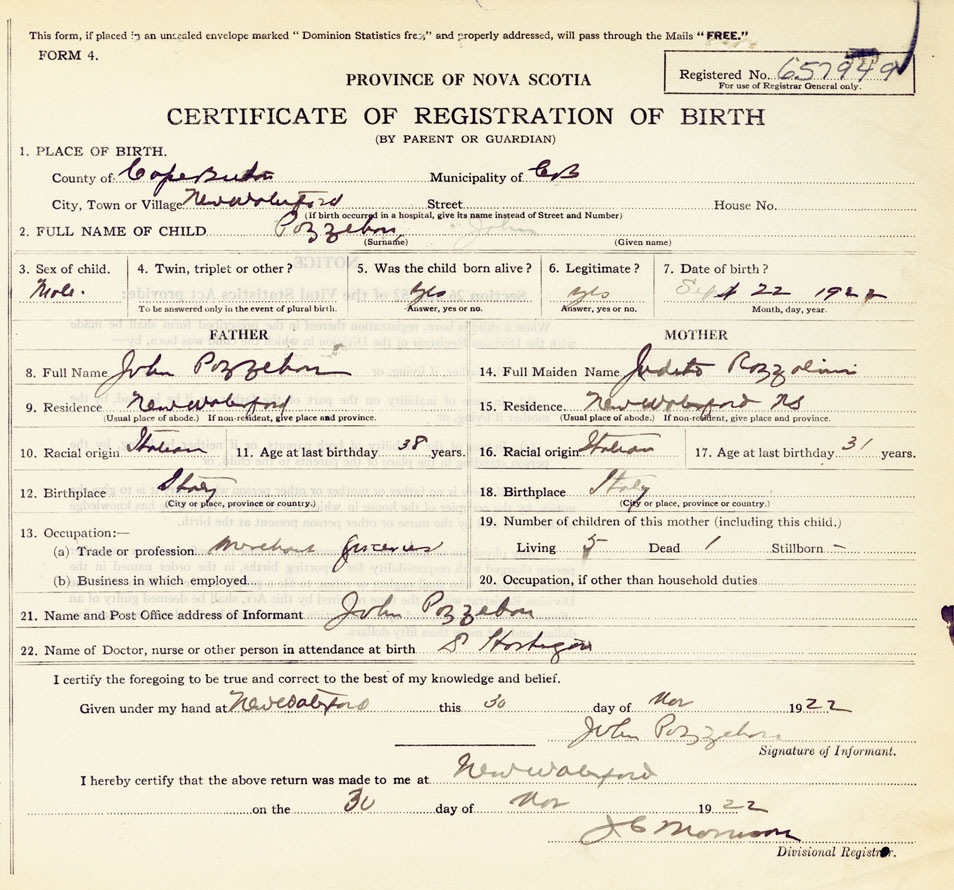 This form, if placed in an unsealed envelope marked "Dominion Statistics free" and properly addressed, will pass through the Mails "FREE."
FORM 4.
Registered No. 657949
For use of Registrar General only.
PROVINCE OF NOVA SCOTIA
CERTIFICATE OF REGISTRATION OF BIRTH
(BY PARENT OR GUARDIAN)
1. PLACE OF BIRTH.
County of Cape Breton Municipality of CB
City, Town or Village New Waterford Street House No.
(If birth occurred in a hospital, give its name instead of Street and Number)
2. FULL NAME OF CHILD Pozzebon John
(Surname) (Given name)
3. Sex of child. 4. Twin, triplet or other? 5. Was the child born alive? 6. Legitimate? 7. Date of birth?
Male. yes yes Sept 22 1922
To be answered only in the event of plural birth. Answer, yes or no. Answer, yes or no. Month, day, year.
FATHER MOTHER
8. Full Name John Pozzebon 14. Full Maiden Name Rozzolini
9. Residence New Waterford 15. Residence New Waterford NS
(Usual place of abode.) If non-resident, give place and province. (Usual place of abode.) If non-resident, give place and province.
10. Racial origin Italian 11. Age at last birthday 38 years. 16. Racial origin Italian 17. Age at last birthday 31 years.
12. Birthplace Italy 18. Birthplace Italy
(City or place, province or country.) (City or place, province or country.)
13. Occupation:— 19. Number of children of this mother (including this child.)
(a) Trade or profession merchant groceries Living 5 Dead 1 Stillborn -
(b) Business in which employed 20. Occupation, if other than household duties
21. Name and Post Office address of Informant John Pozzebon
22. Name of Doctor, nurse or other person in attendance at birth
I certify the foregoing to be true and correct to the best of my knowledge and belief.
Given under my hand at New Waterford this 30 day of Nov 1922
John Pozzebon
Signature of Informant.
I hereby certify that the above return was made to me at New Waterford
on the 30 day of Nov 1922
J C Morrison
Divisional Registrar.